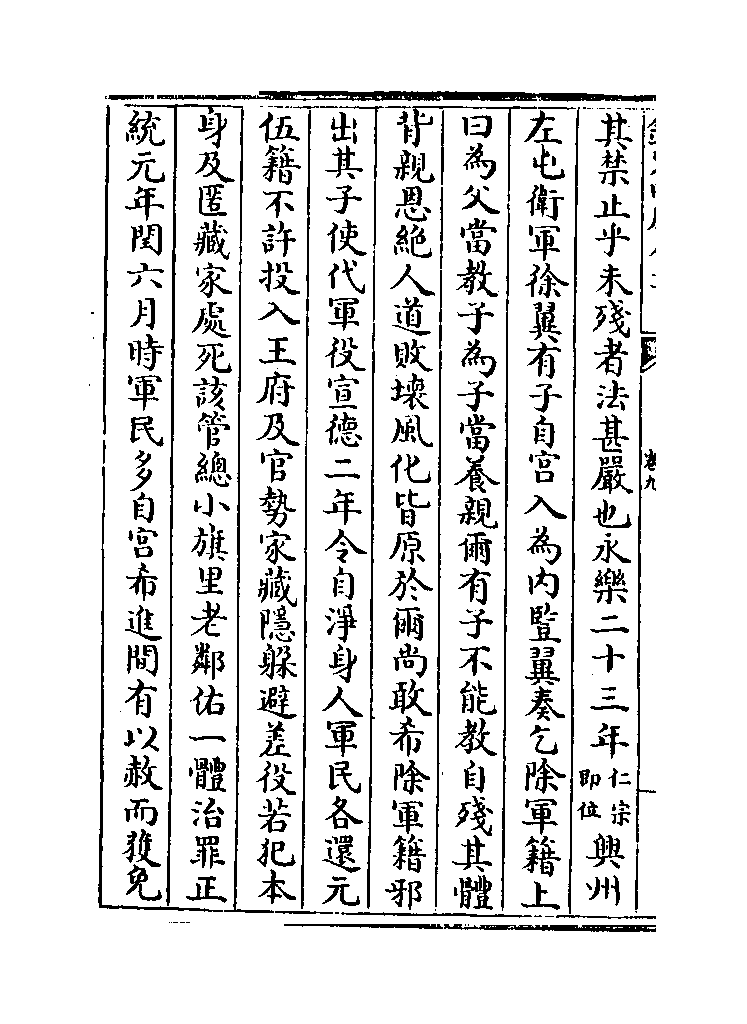 卷九
其禁止乎未殘者法甚嚴也永樂二十三年仁宗即位興州
左屯衛軍徐翼有子自宮入為内監翼奏乞除軍籍上
曰為父當教子為子當養親爾有子不能教自殘其體
背親恩絶人道敗壞風化皆原於爾尚敢希除軍籍邪
出其子使代軍役宣德二年令自淨身人軍民各還元
伍籍不許投入王府及官勢家藏隱躱避差役若犯本
身及匿藏家處死該管總小旗里老鄰佑一體治罪正
統元年閏六月時軍民多自宮希進間有以赦而獲免